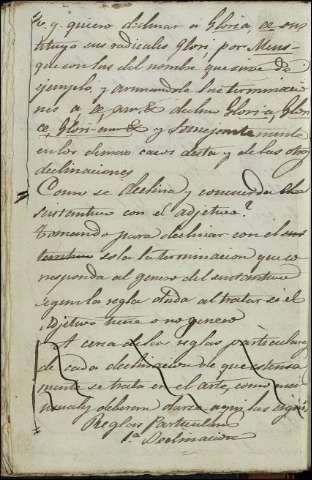 Si quiero declinar á Gloria, ae sus
tituyo sus radicales Glori, por Mens
que son las del nombre que sirve de
ejemplo, y arrimandole las terminacio
nes a ae, am &c declino Gloria, Glori
ae, Glori-am &c y semejantemente
en los demas casos desta y de las otras
declinaciones
Como se declina y concuerda
sustantivo con el adjetivo?
Tomando para declinar con el sus
tantivo sola la terminacion que co
rresponda al genero del sustantivo
segun la regla dada al tratar si el
Adjetivo tiene o no genero
A cerca de las reglas particulares
de cada declinacion de que estensa
mente se trata en el arte, como mas
usuales deberan darse aqui las sigtes
Reglas Particulares
1a Declinacion